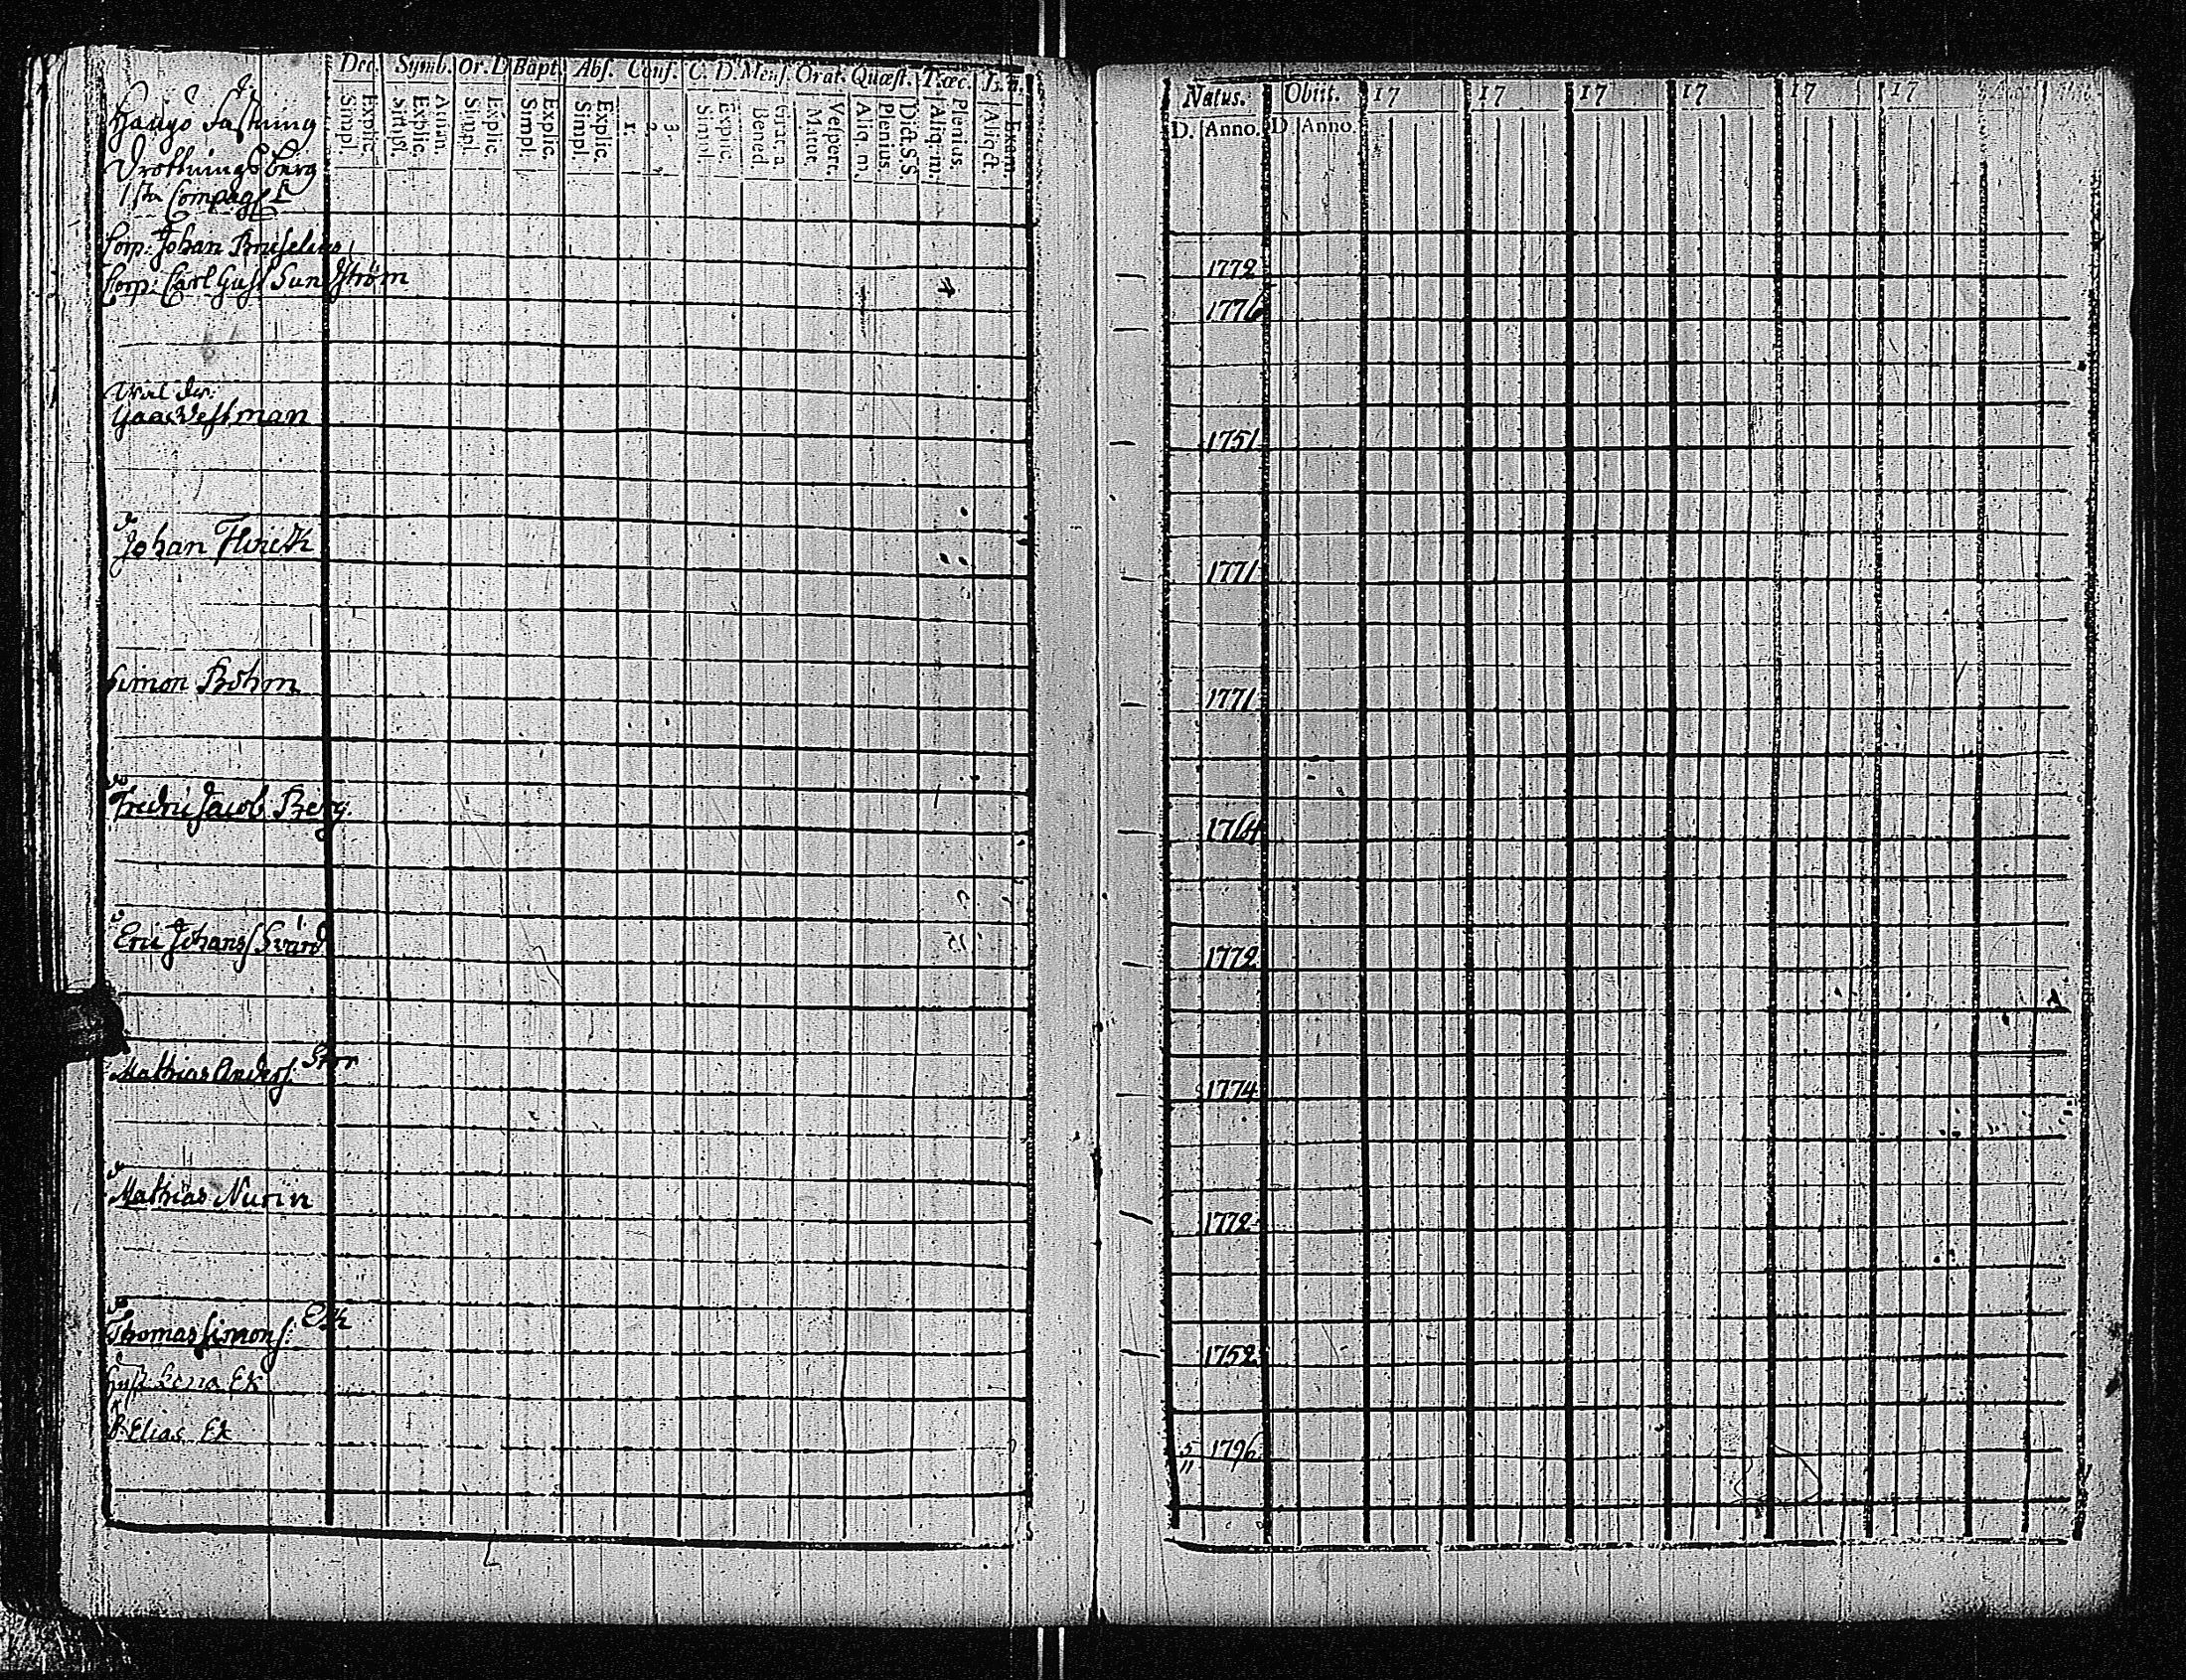 Dec. Symb. Or. D Bapt. Abs. Conf. C. D. Mens. Orat. Quæst. T.œc.
Simpl. Explic. Simpl. Explic. Simpl. Explic. Simpl. Explic. Simpl. Explic. 1. 2. 3. Simpl. Explic. Bened. Grat. a. Matut. Vespert. Aliq. m. Plenius. Dict. S. S. Aliq. m. Plenius. Aliq. ct. Exam.
Natus. Obiit. 17 17 17 17 17 17
D. Anno. D Anno.
Hangö Fästning
Drottningsberg
1sta Compag
Corp: Johan
Corp: Carl Gust Sundström
1772
1776
Isaac Westman
1751
Johan
1771
Simon Böhm
1771
Fredric Jacob Berg.
1764
Eric Johanss. Svärd
1772
Mathias Anderss. Stor
1774
Mathias Nurin
1772
Thomas Simons. Ek
1752
Hust. Lena Ek
S. Elias Ek
5/11 1796